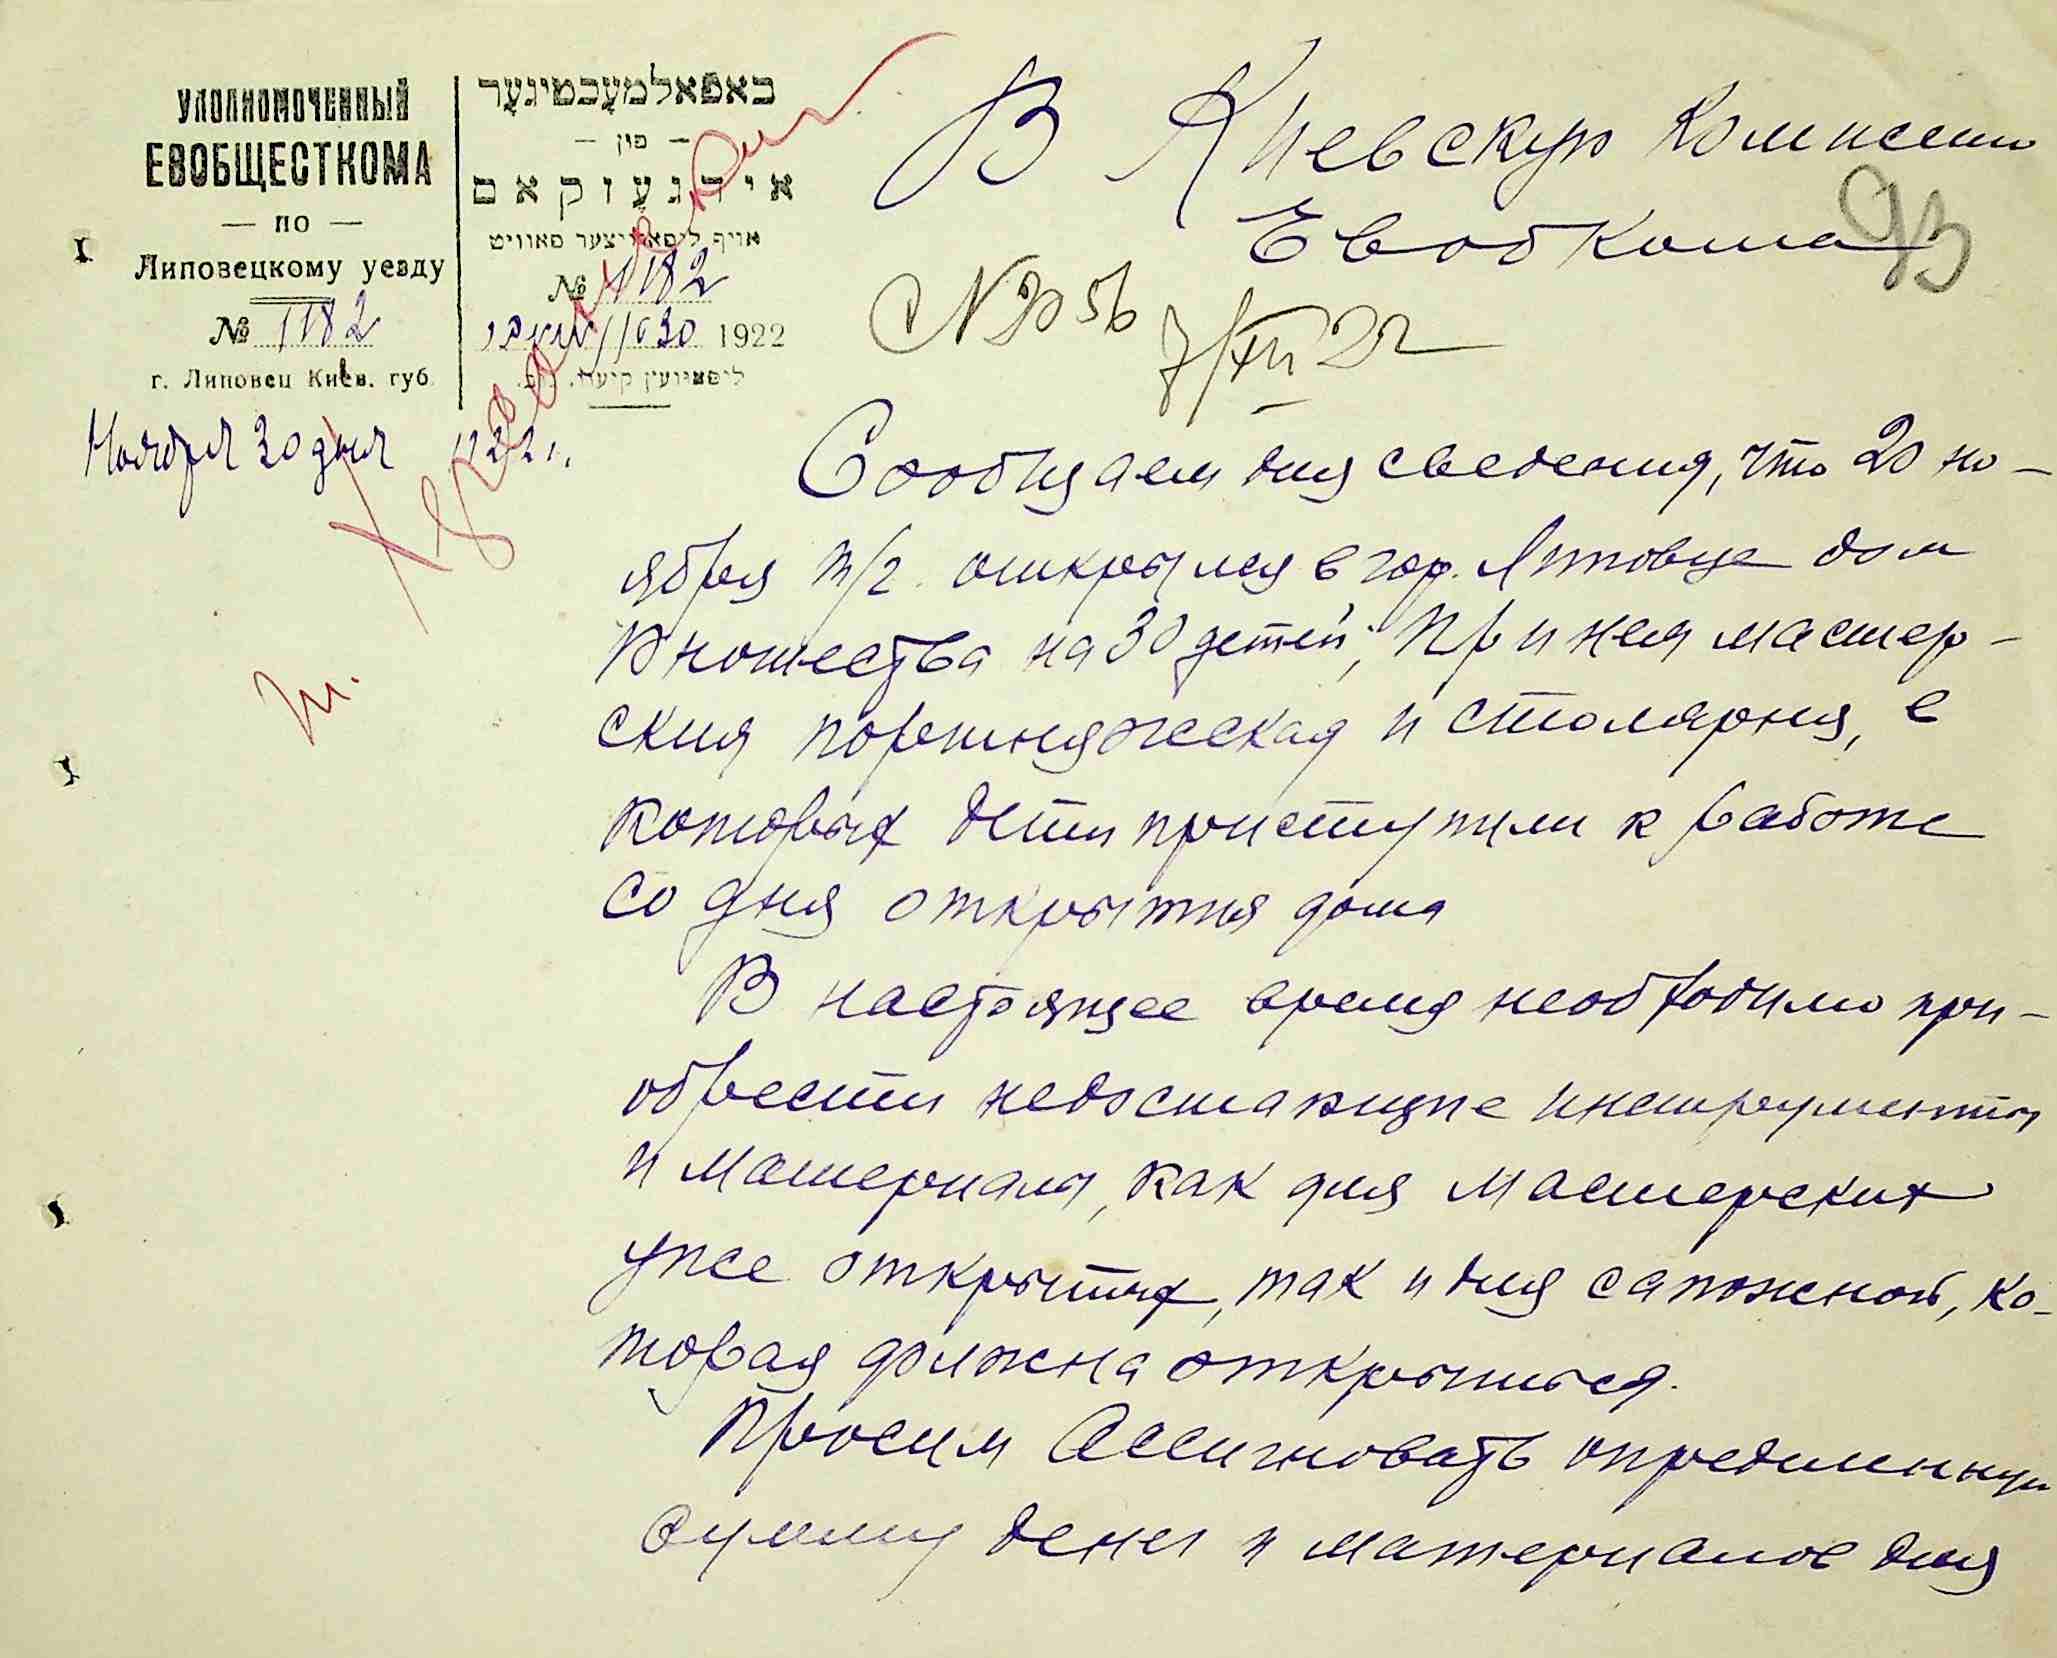 УПОЛНОМОЧЕННЫЙ
ЕВОБЩЕСТКОМА
— ПО —
Липовецкому уезду
№ 1182
г. Липовец Киев. губ.
Ноября 30 дня 1922 г.
באפאלמעכטיגער
— פון —
אידגעזקאם
אויף ליפאוויצער פאוויט
№ 1182
30 1922
В Киевскую Комиссию
Евобкома
93
№ 2056
7/XII 22
Сообщаем для сведения, что 20 но-
ября т/г. открылся в гор. Липовце дом
Юношества на 30 детей; При нем мастер-
ския портняжеская и столярня, в
которых дети приступили к работе
со дня открытия дома
В настоящее время необходимо при-
обрести недостающие инструменты
и материалы, как для мастерских
уже открытых, так и для сапожной, ко-
торая должна открыться.
Просим Ассигновать определенную
сумму денег и материалов для